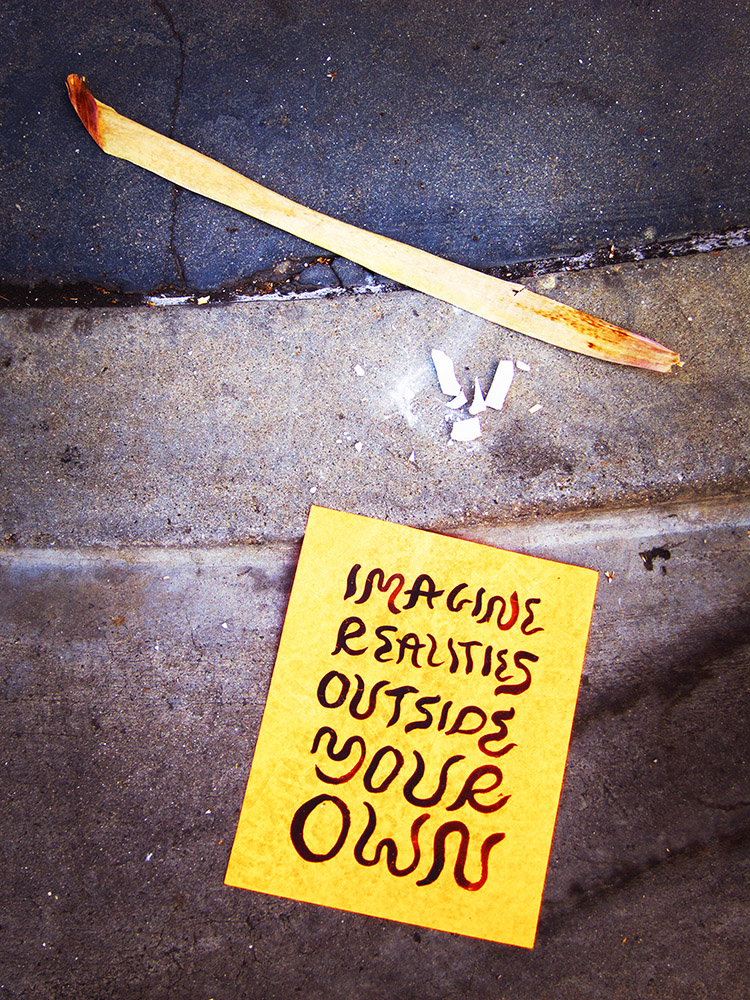 IMAGINE
REALITIES
OUTSIDE
YOUR
OWN